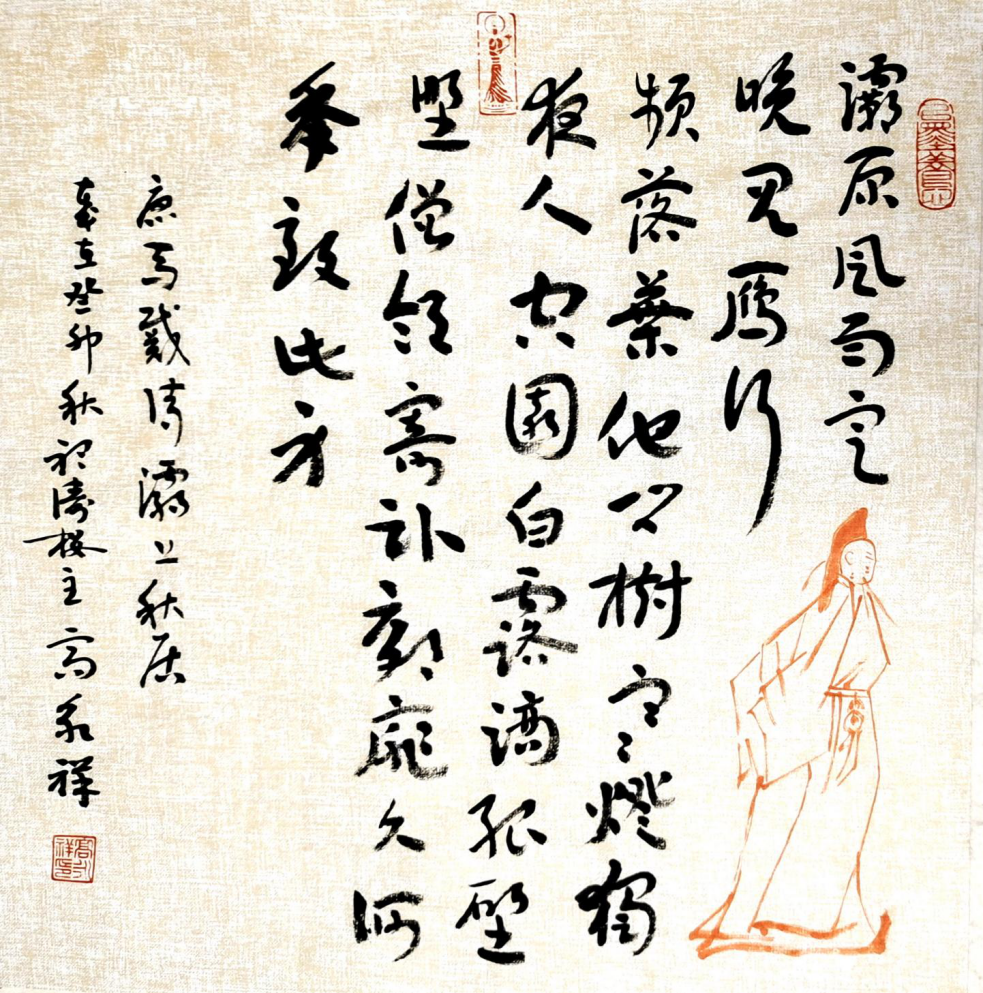 灞原風雨定
晚見雁行
頻落葉他鄉樹寒燈獨
夜人空園白露滴孤壁
野僧鄰寄卧郊扉久何
年致此身
唐馬戴詩灞上秋居
歲在癸卯秋濤樓主高永祥
高永祥印